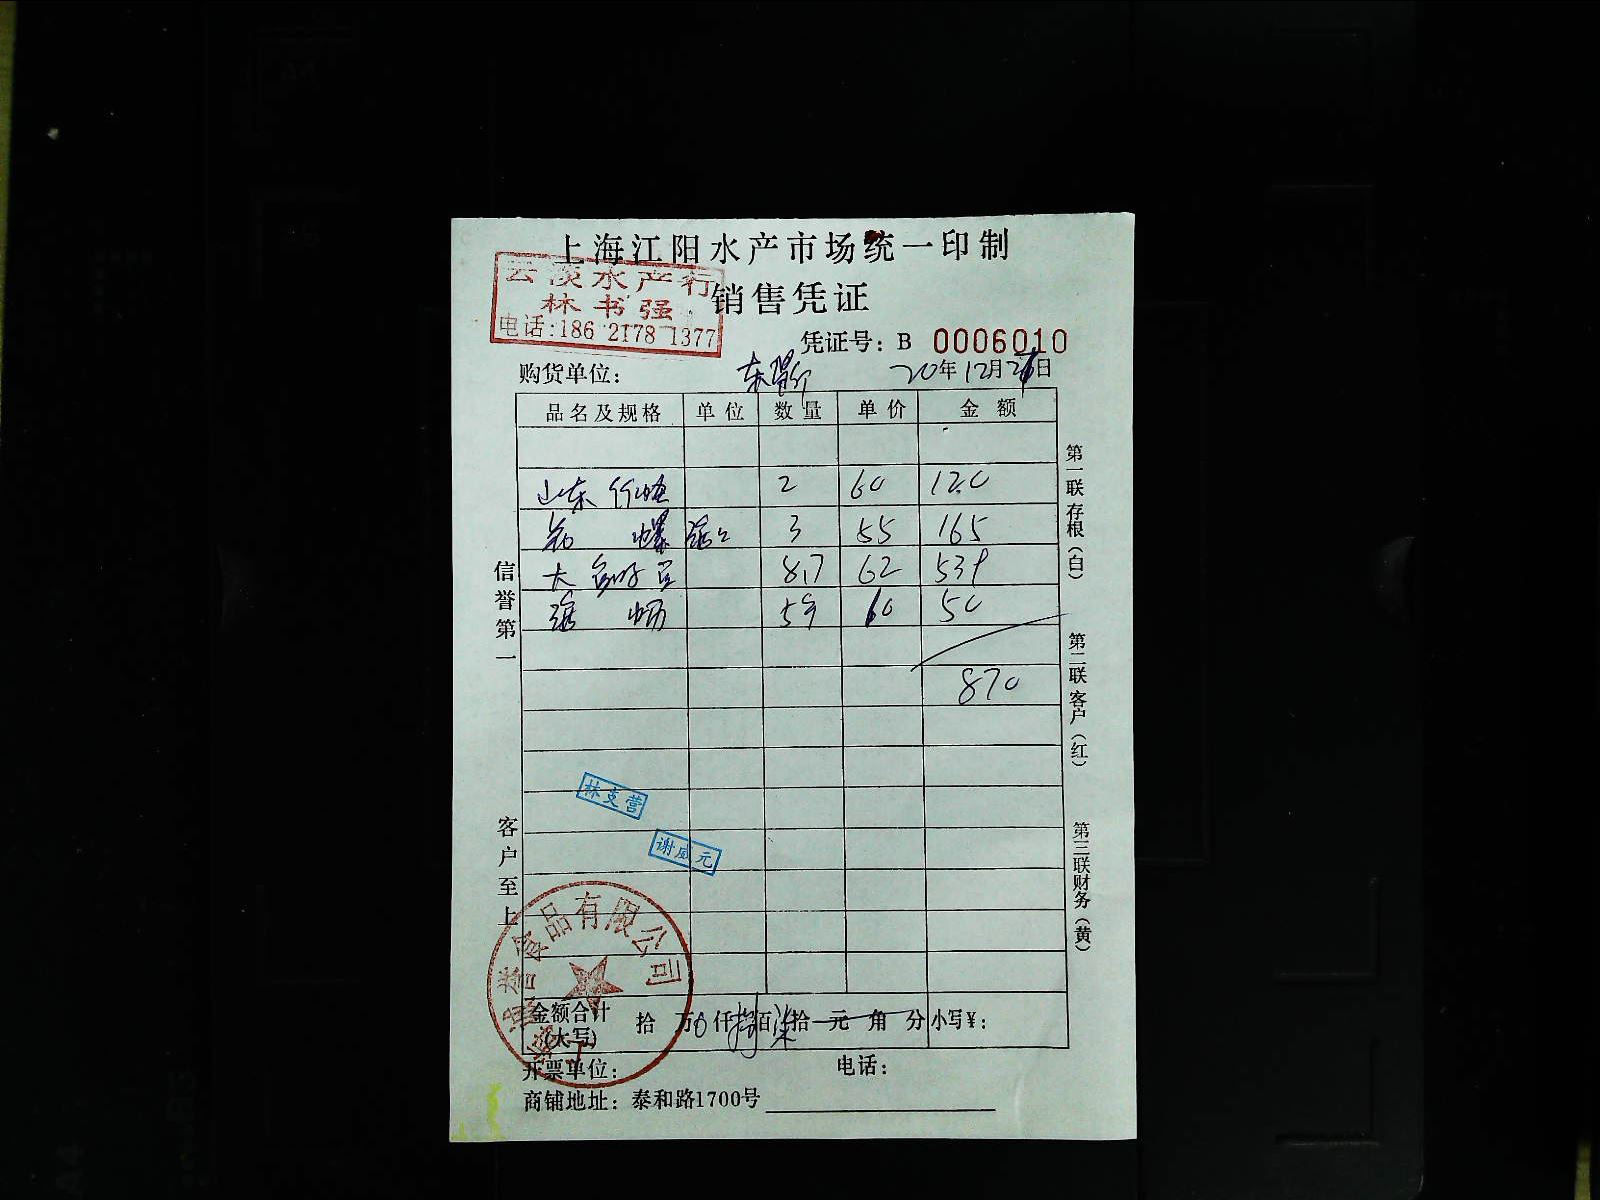 上海江阳水产市场统一印制
云淡水产行
林书强
电话:186 2178 1377
销售凭证
凭证号: B 0006010
购货单位:
20年12月 日
品名及规格 单位 数量 单价 金额
山东 2 60 120
螺 3 55 165
大 8.7 62 539
59 60 50
870
信誉第一
客户至上
第一联存根(白)
第二联客户(红)
第三联财务(黄)
林支营
谢 元
食品有限公司
金额合计(大写) 拾 万 0 仟 捌 佰 柒 拾 元 角 分 小写¥:
开票单位: 电话:
商铺地址: 泰和路1700号